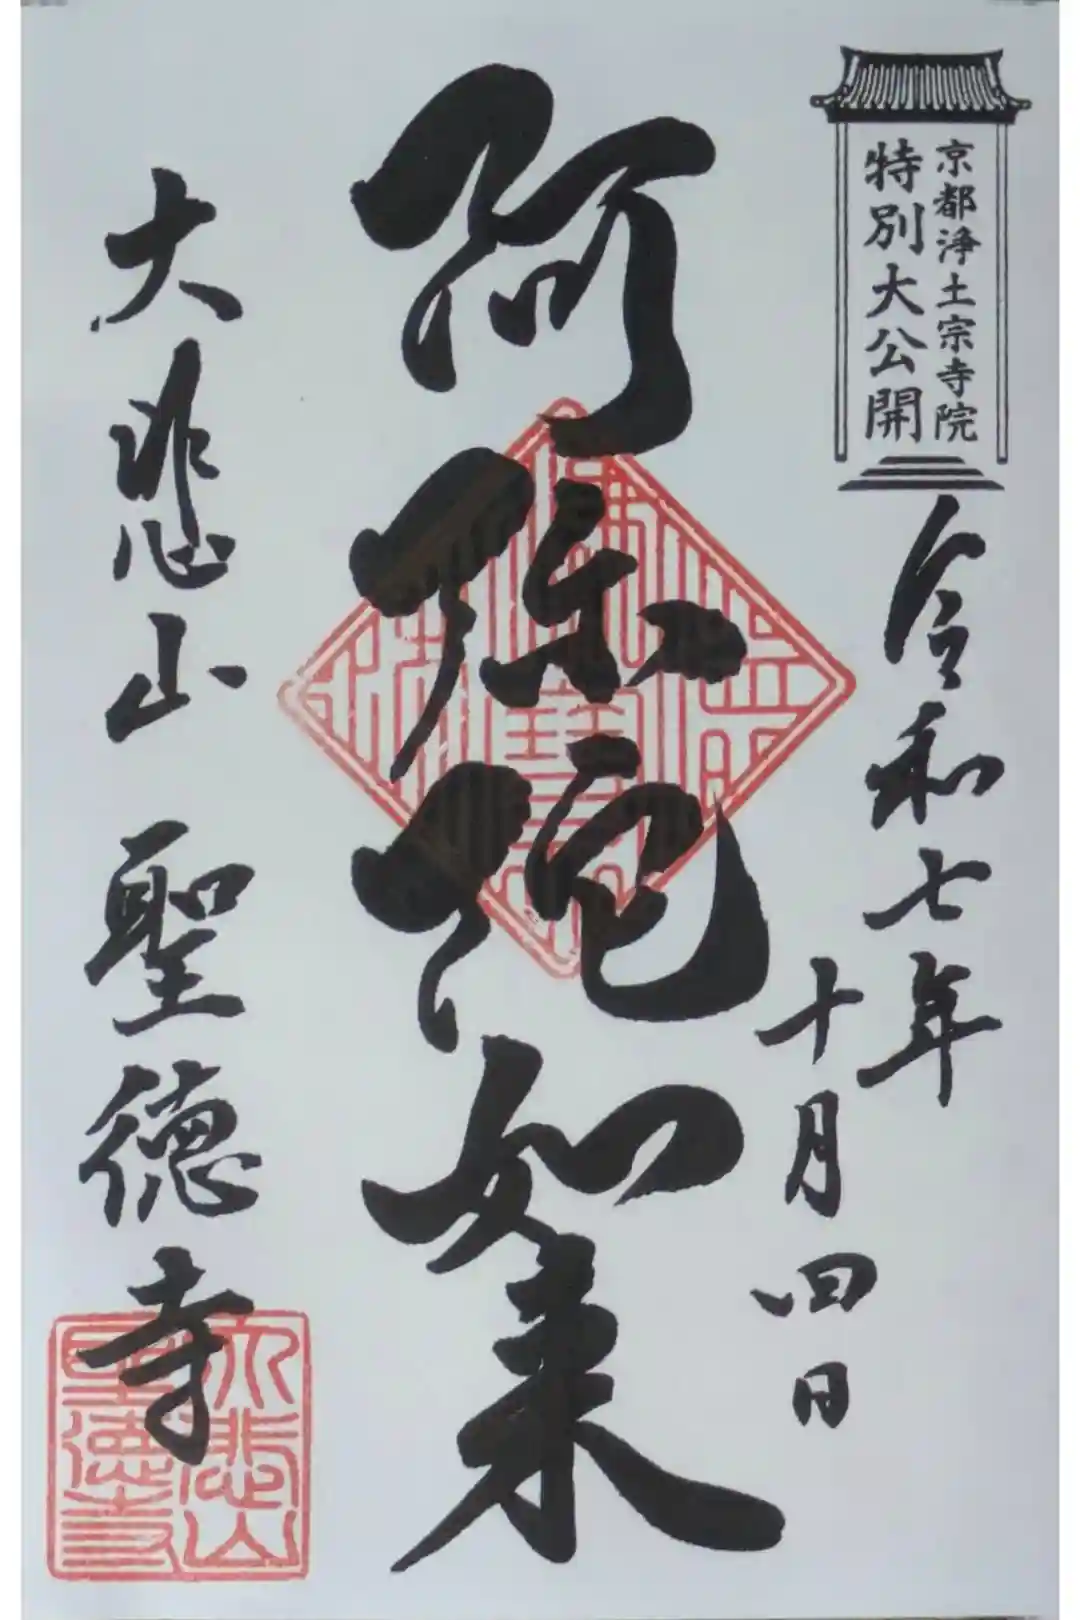 京都浄土宗寺院
特別大公開
令和七年
十月四日
阿弥陀如来
大悲山 聖徳寺
大悲山
聖徳寺